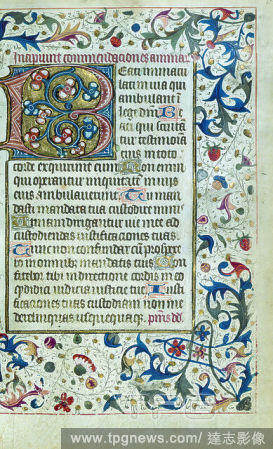 Incipiunt commendaciones animar
Beati inmacu
lati in via qui
ambulant i
lege dni Be
ati qui scruta
tur testimoia
eius in toto
corde exquirunt eum Non enim
qui operantur iniquitate in vijs
eius ambulaverunt Tu man
dasti mandata tua custodire nimis
Utinam dirigantur vie mee ad
custodiendas iustificaciones tuas
Tunc non confundar cum pspexe
ro in omnibz mandatis tuis Con
fitebor tibi in directione cordis in eo
quod didici iudicia iusticie tue Iusti
ficaciones tuas custodiam non me
derelinquas usquequaqz ps
www.tpgnews.com/ 達志影像